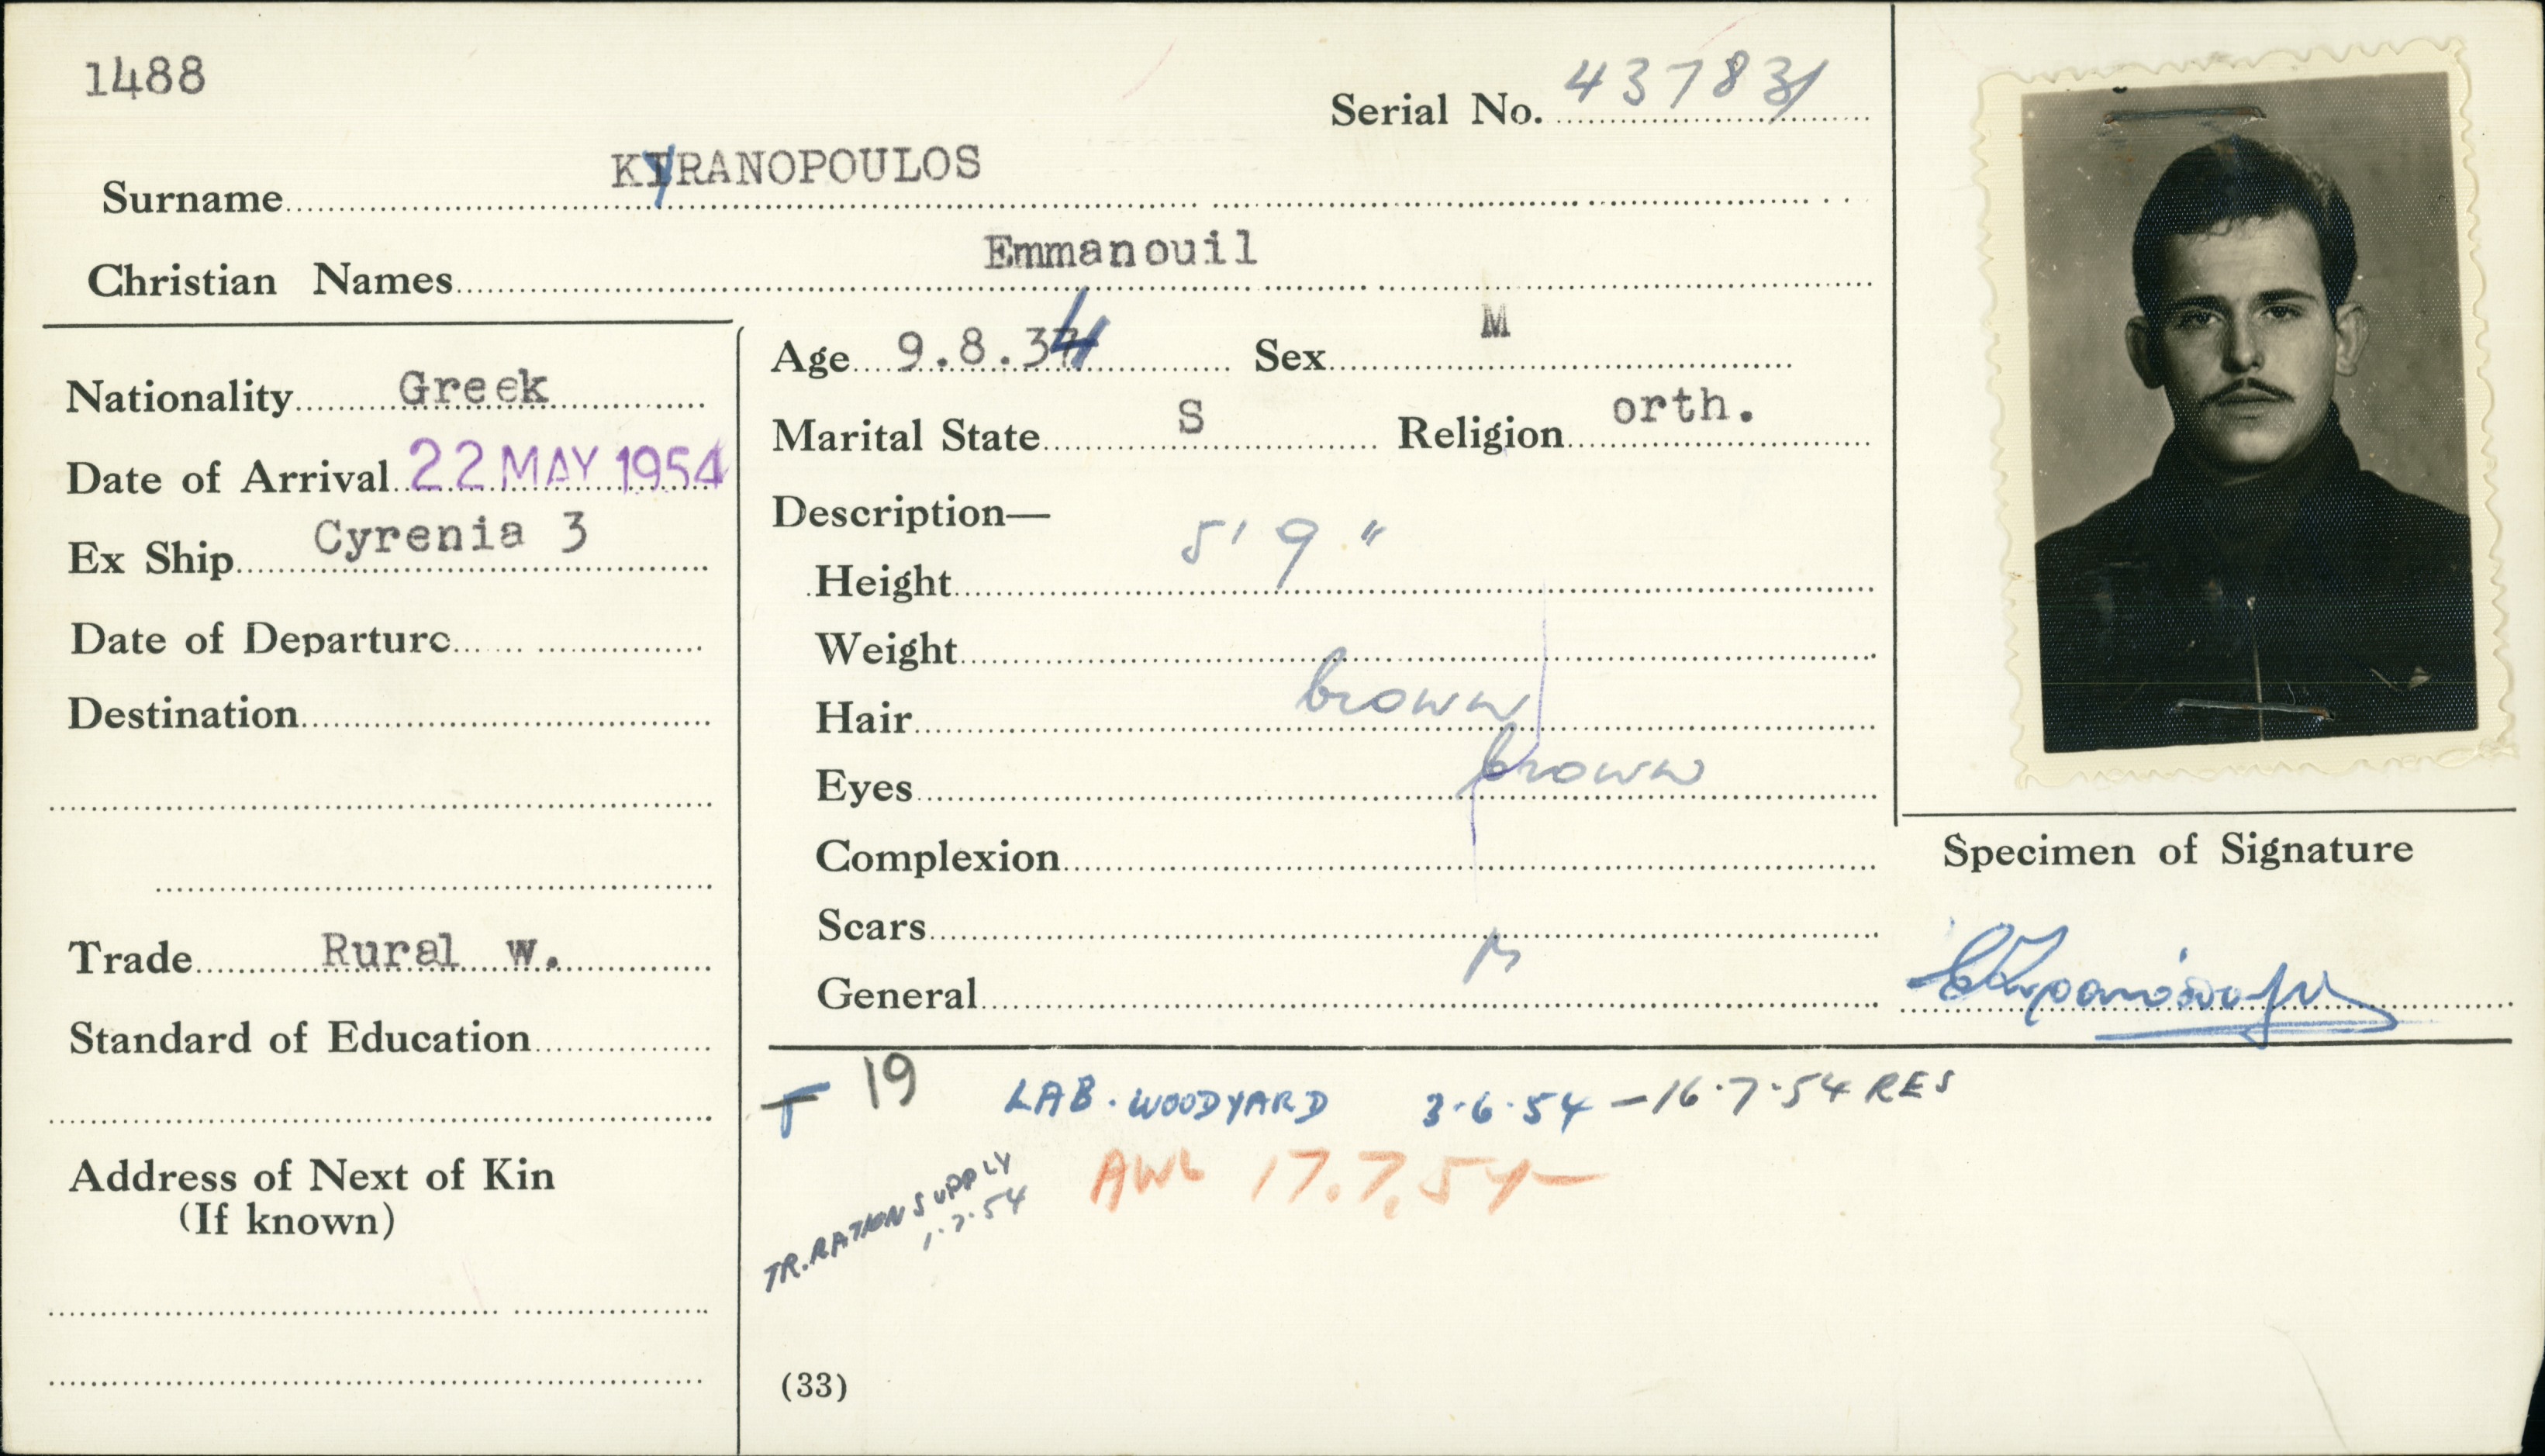 1488
Serial No. 43783/
Surname KYRANOPOULOS
Christian Names Emmanouil
Nationality Greek
Date of Arrival 22 MAY 1954
Ex Ship Cyrenia 3
Date of Departure
Destination
Trade Rural w.
Standard of Education
Address of Next of Kin
(If known)
Age 9.8.34 Sex M
Marital State S Religion orth.
Description—
Height 5' 9"
Weight
Hair brown
Eyes brown
Complexion
Scars
General
Specimen of Signature
T 19 LAB. WOODYARD 3.6.54 - 16.7.54 RES
AWL 17.7.54 -
TR. RATION SUPPLY
1.7.54
(33)